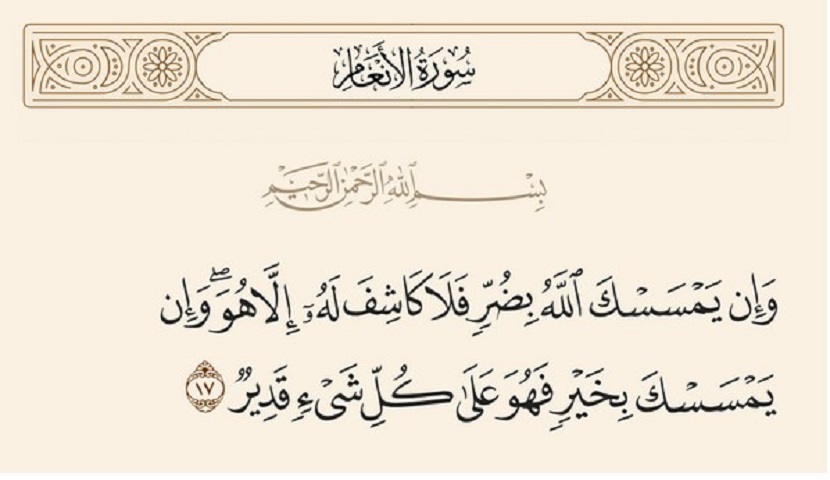 سُورَةُ الأَنْعَامِ
بِسْمِ ٱللَّهِ ٱلرَّحْمَٰنِ ٱلرَّحِيمِ
وَإِن يَمْسَسْكَ ٱللَّهُ بِضُرٍّ فَلَا كَاشِفَ لَهُۥٓ إِلَّا هُوَ ۖ وَإِن
يَمْسَسْكَ بِخَيْرٍ فَهُوَ عَلَىٰ كُلِّ شَىْءٍ قَدِيرٌ ١٧